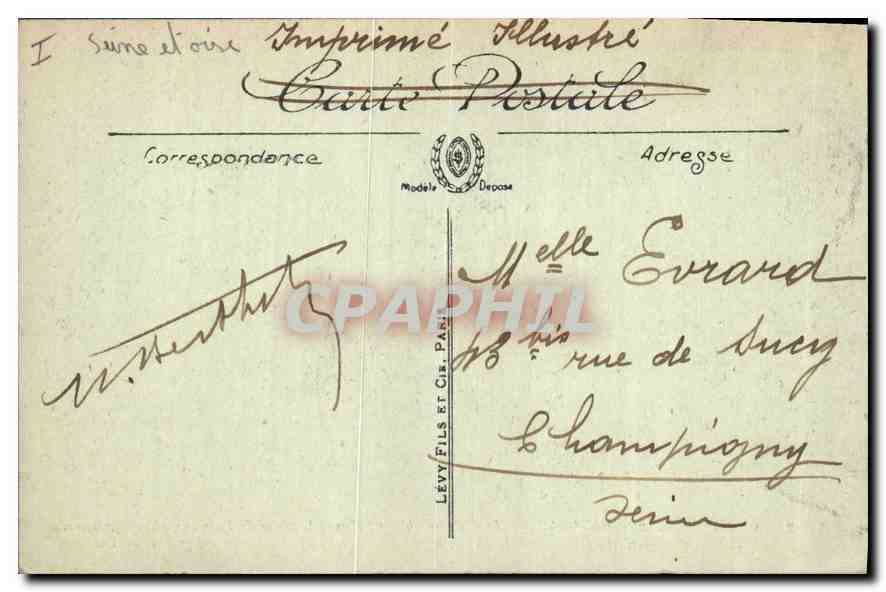 I Seine et oise Imprimé Illustré
Carte Postale
Correspondance
Adresse
Modèle Déposé
Melle Evrard
43 bis rue de Sucy
Champigny
Seine
LÉVY FILS ET CIE, PARIS
CPAPHIL